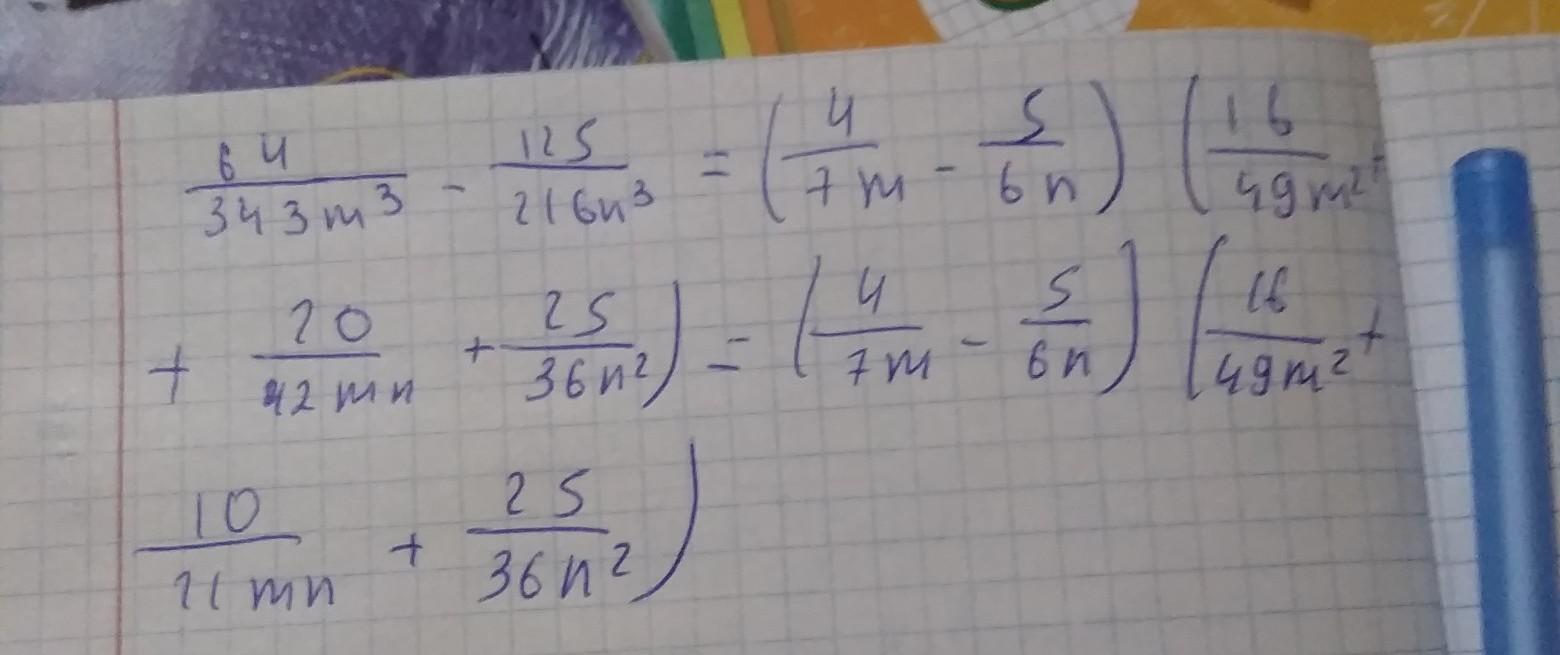 64/343m³ - 125/216n³ = (4/7m - 5/6n) (16/49m² +
+ 20/42mn + 25/36n²) = (4/7m - 5/6n) (16/49m² +
10/21mn + 25/36n²)